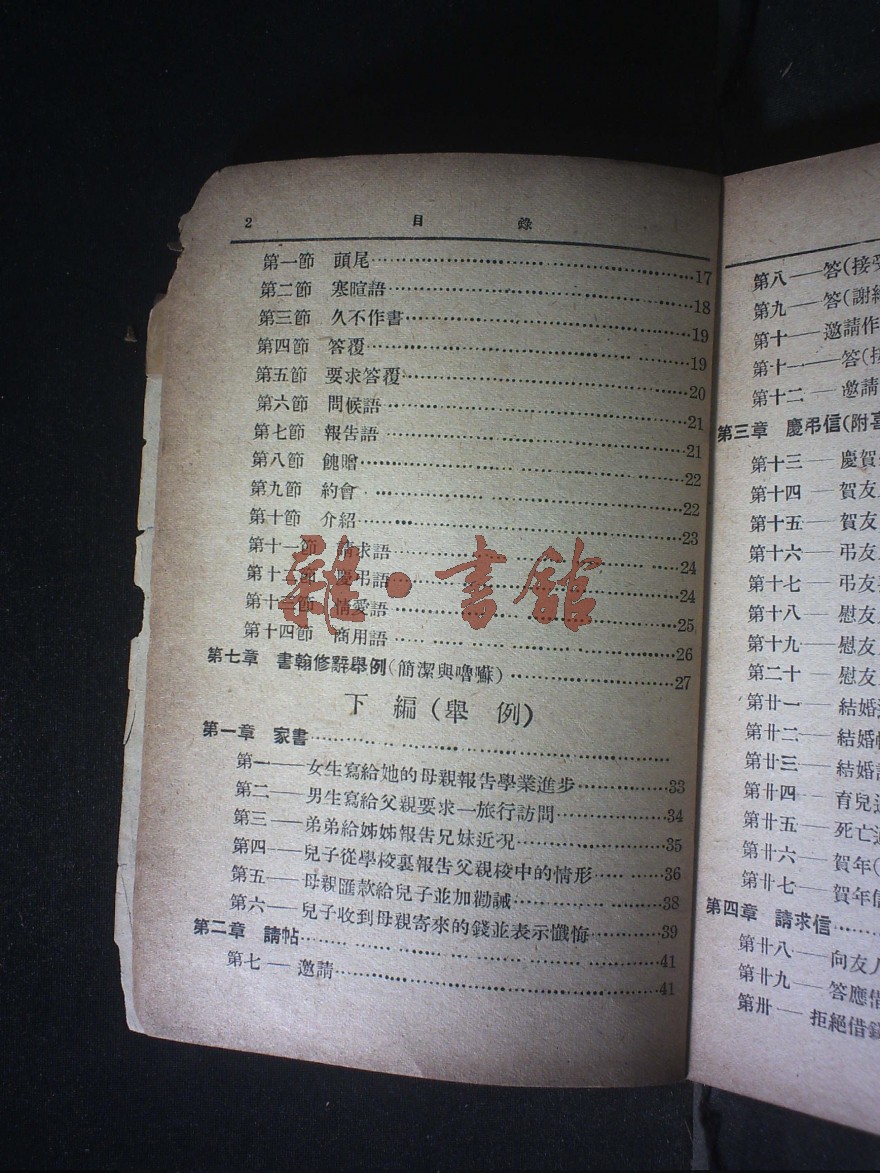 2 目錄
第一節 頭尾……17
第二節 寒暄語……18
第三節 久不作書……19
第四節 答覆……19
第五節 要求答覆……20
第六節 問候語……21
第七節 報告語……21
第八節 餽贈……22
第九節 約會……22
第十節 介紹……23
第十一節 請求語……24
第十二節 慶弔語……24
第十三節 情愛語……25
第十四節 商用語……26
第七章 書翰修辭舉例(簡潔與嚕囌)……27
下編(舉例)
第一章 家書……
第一——女生寫給她的母親報告學業進步……33
第二——男生寫給父親要求一旅行訪問……34
第三——弟弟給姊姊報告兄妹近況……35
第四——兒子從學校裏報告父親校中的情形……36
第五——母親匯款給兒子並加勸誡……38
第六——兒子收到母親寄來的錢並表示懺悔……39
第二章 請帖……41
第七——邀請……41
雜·書館
第八——答(接受
第九——答(謝
第十——邀請作
第十一——答(
第十二——邀請
第三章 慶弔信(附喜
第十三——慶賀
第十四——賀友
第十五——賀友
第十六——弔友
第十七——弔友
第十八——慰友
第十九——慰友
第二十——慰友
第廿一——結婚
第廿二——結婚
第廿三——結婚
第廿四——育兒
第廿五——死亡
第廿六——賀年(
第廿七——賀年信
第四章 請求信……
第廿八——向友
第廿九——答應借
第卅——拒絕借錢